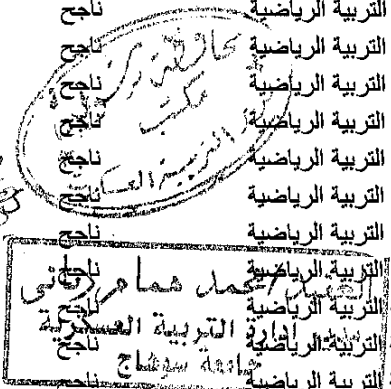 التربية الرياضية ناجح
التربية الرياضية ناجح
التربية الرياضية ناجح
التربية الرياضية ناجح
التربية الرياضية ناجح
التربية الرياضية ناجح
التربية الرياضية ناجح
التربية الرياضية ناجح
التربية الرياضية ناجح
التربية الرياضية ناجح
التربية الرياضية ناجح
مكتب
التربية العسكرية
محمد همام
إدارة التربية العسكرية
جامعة سوهاج